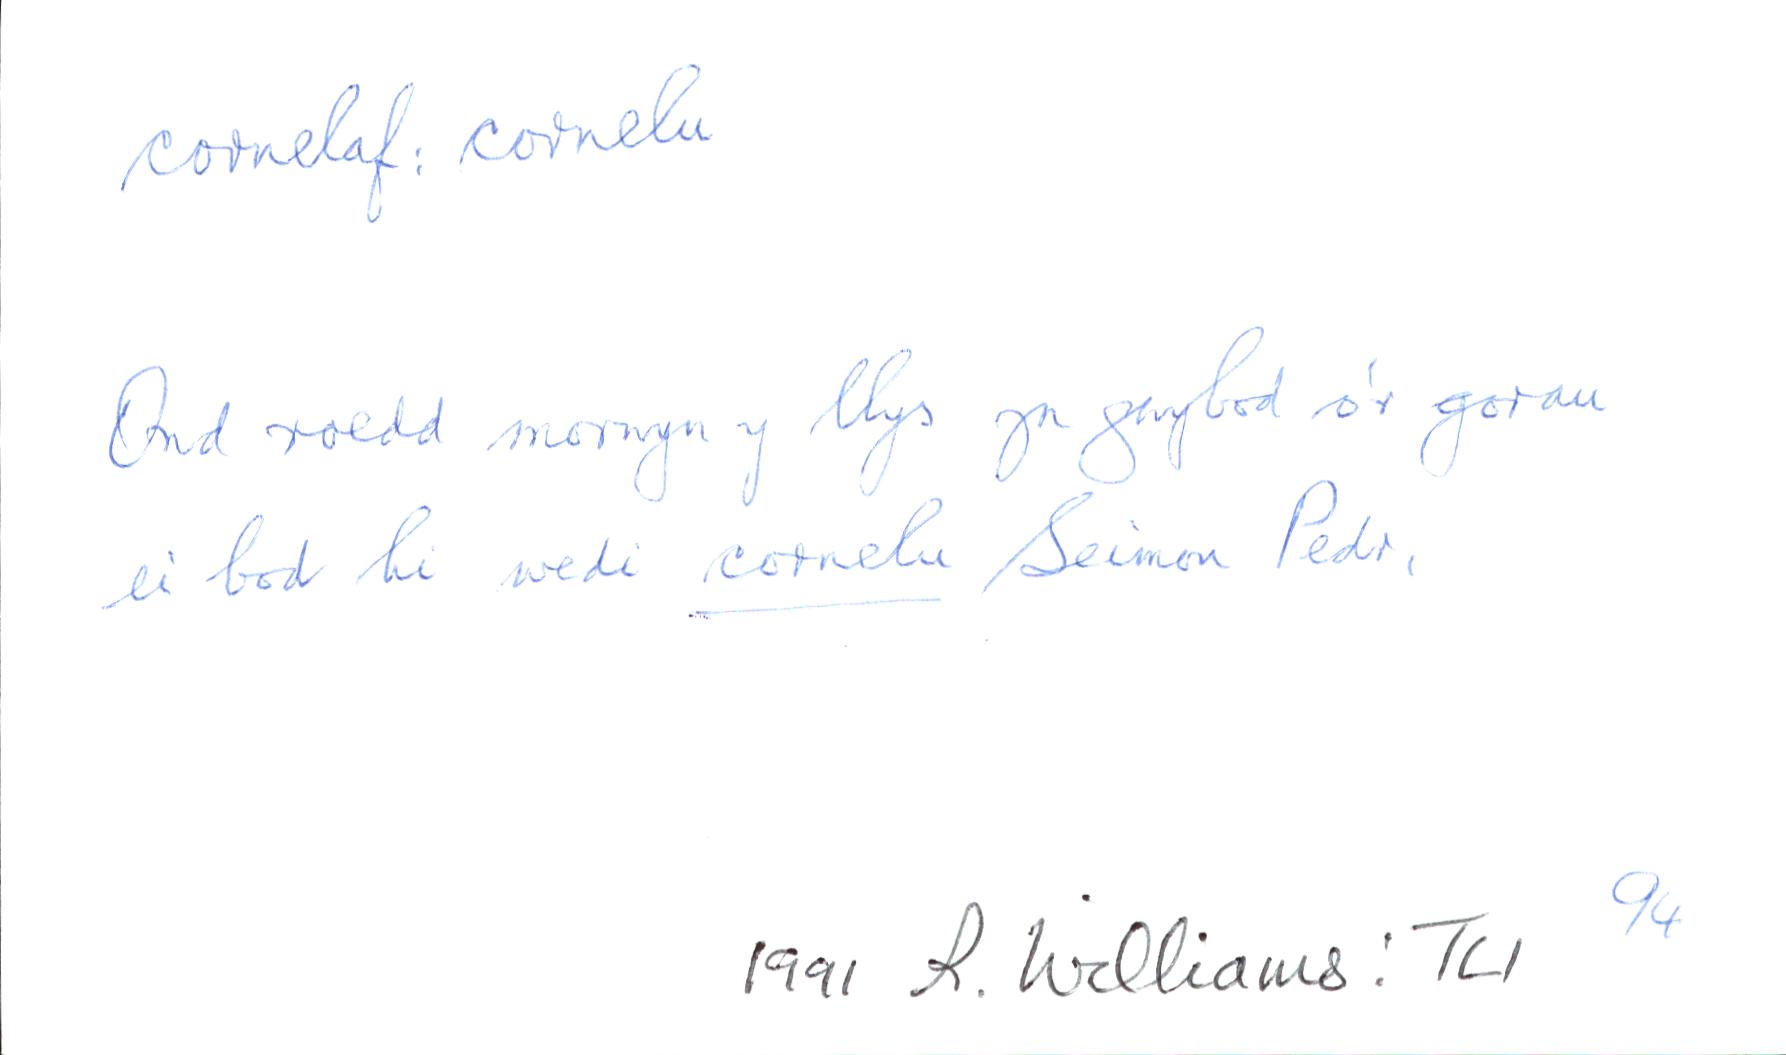 cornelaf: cornelu
Ond roedd morwyn y llys yn gwybod o'r gorau
ei bod hi wedi cornelu Seimon Pedr.
94
1991 R. Williams: TLI